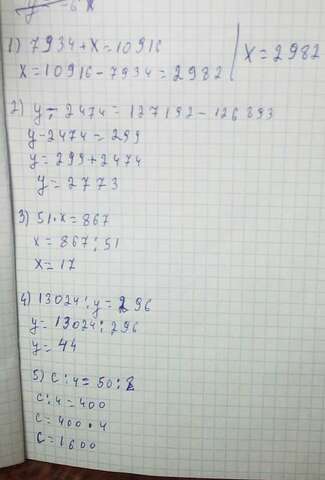 1) 7934 + x = 10916
x = 10916 - 7934 = 2982
x = 2982
2) y - 2474 = 127192 - 126893
y - 2474 = 299
y = 299 + 2474
y = 2773
3) 51 · x = 867
x = 867 : 51
x = 17
4) 13024 : y = 296
y = 13024 : 296
y = 44
5) c : 4 = 50 · 8
c : 4 = 400
c = 400 · 4
c = 1600